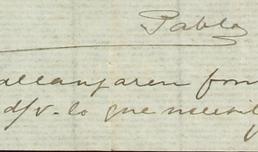 Pablo
alcanzaren fon
d/v. lo que necesit